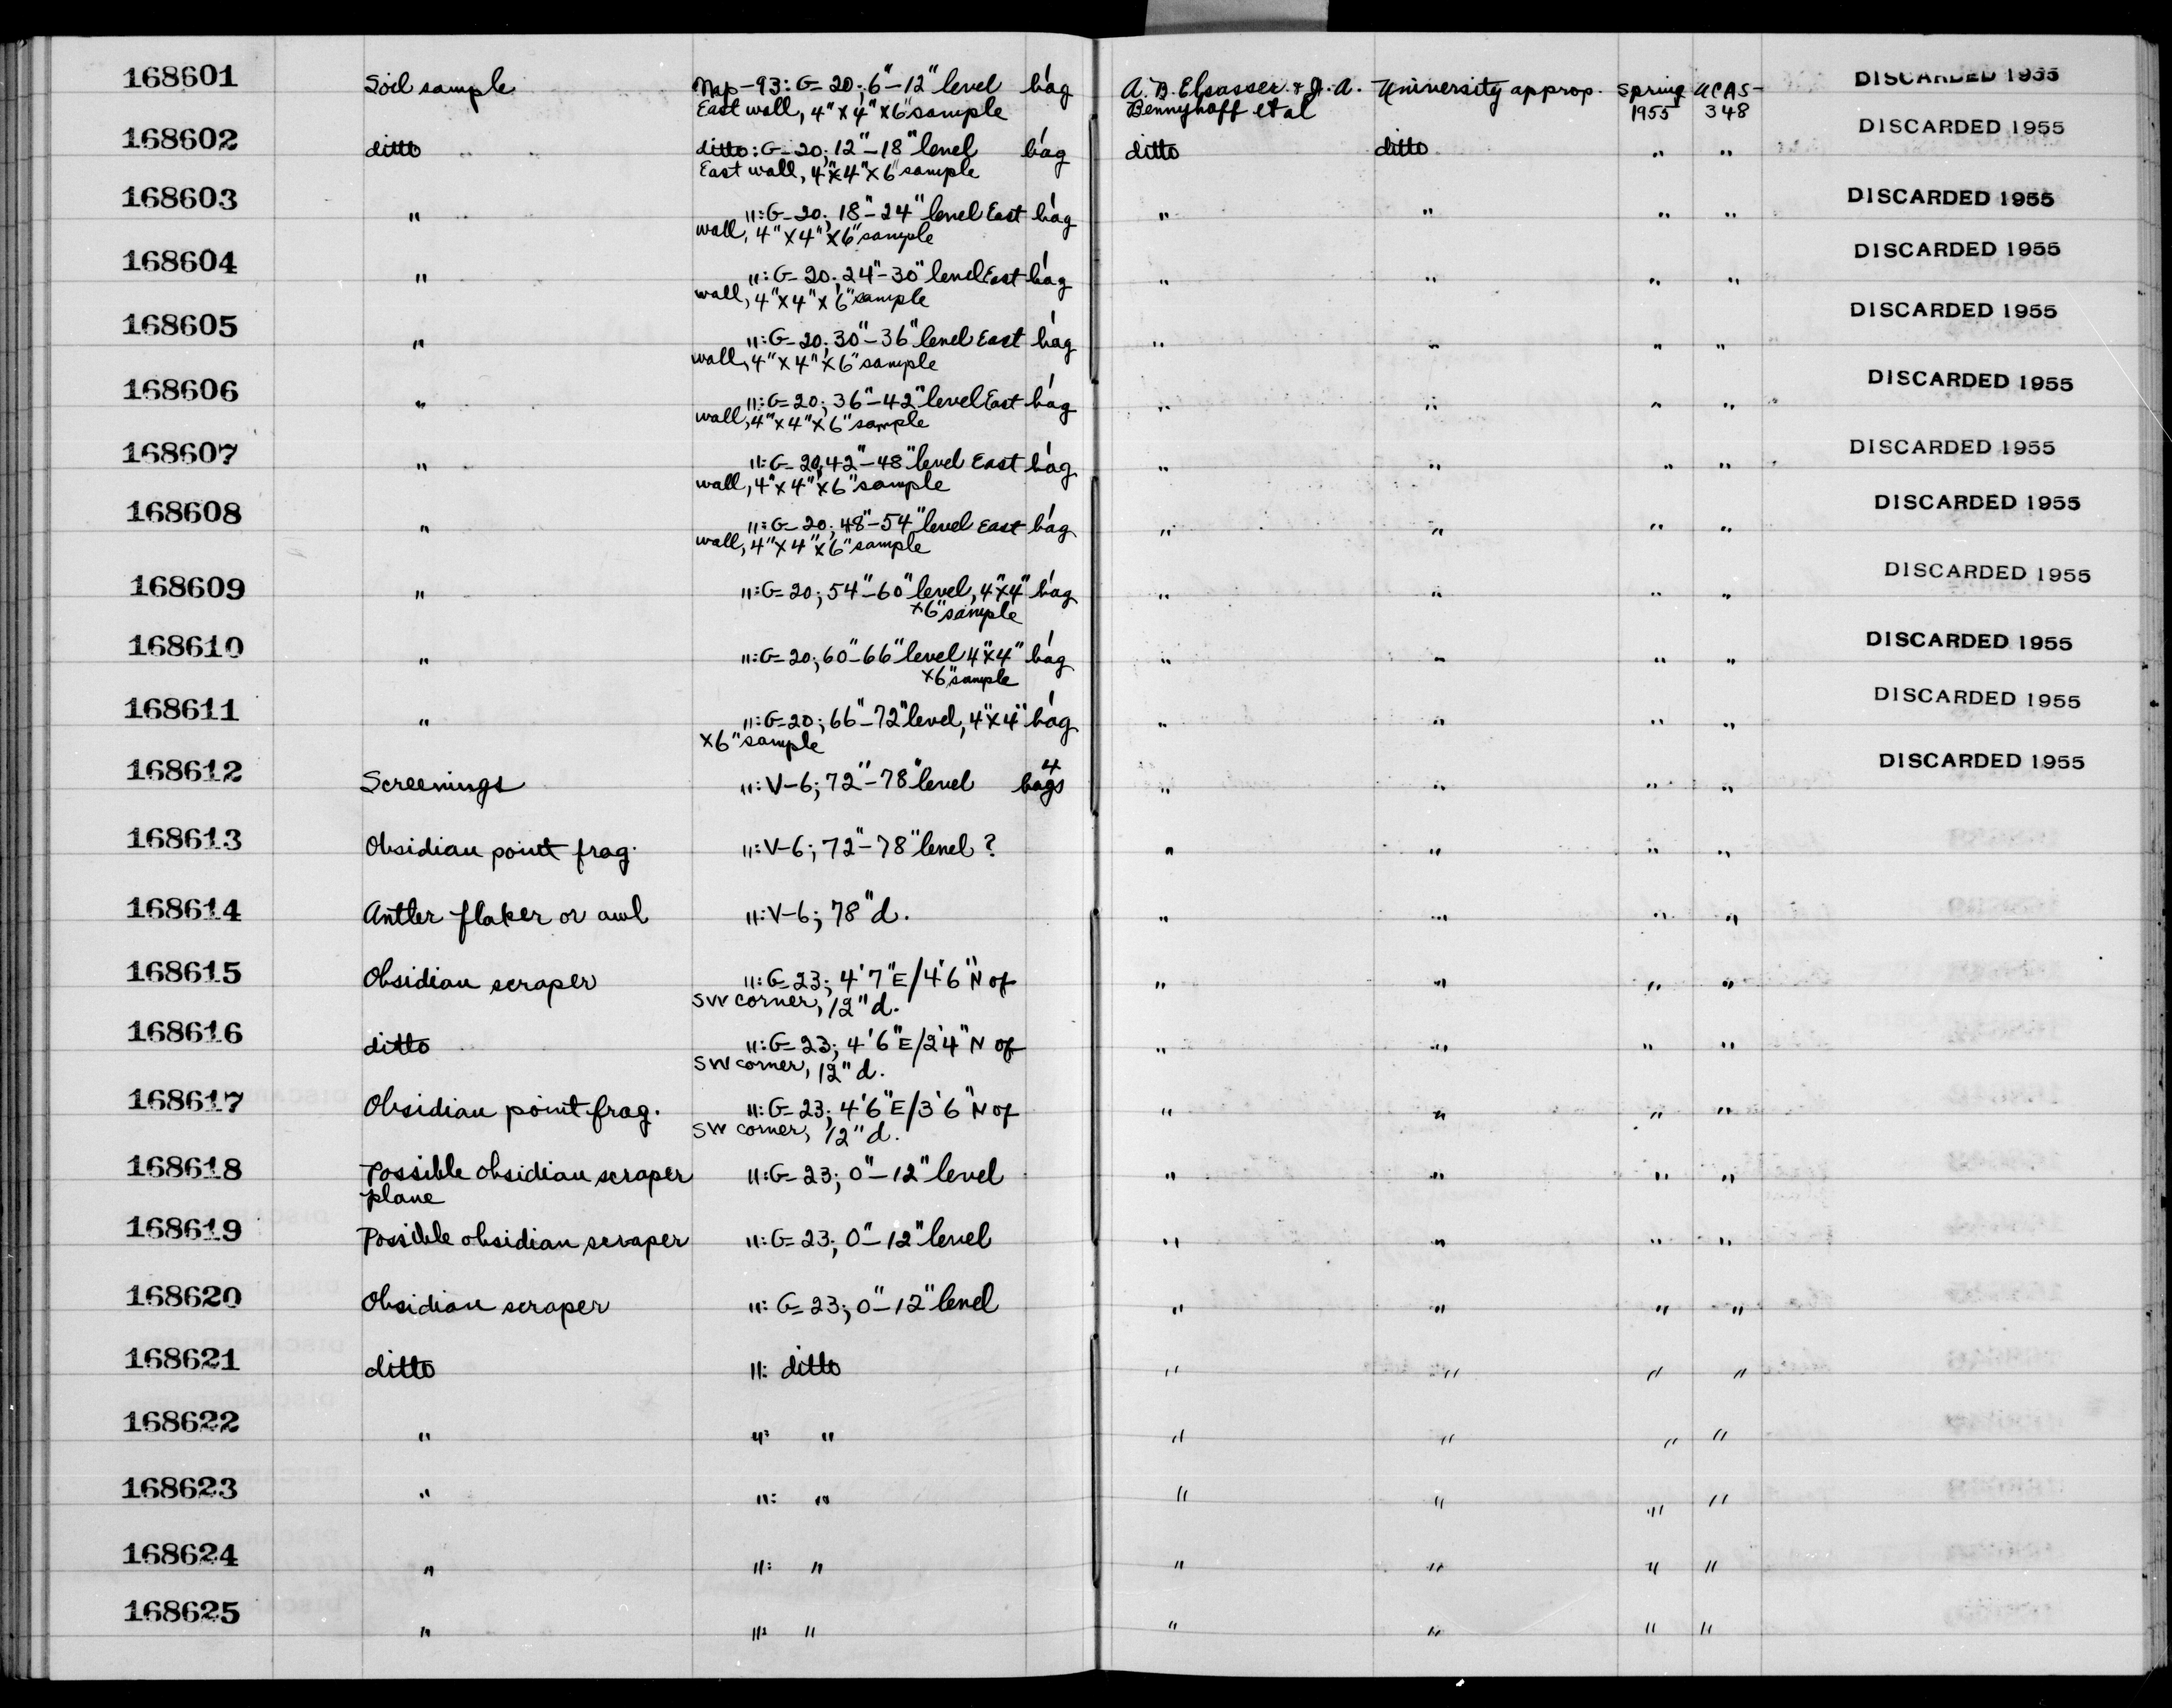 168601 Soil sample Nap-93: G-20; 6"-12" level 1 bag A. B. Elsasser & J. A. University approp. Spring UCAS- DISCARDED 1955
East wall, 4"x4"x6" sample Bennyhoff et al 1955 348
168602 ditto ditto: G-20; 12"-18" level 1 bag ditto ditto " " DISCARDED 1955
East wall, 4"x4"x6" sample
168603 " ": G-20; 18"-24" level East 1 bag " " " " DISCARDED 1955
wall, 4"x4"x6" sample
168604 " ": G-20; 24"-30" level East 1 bag " " " " DISCARDED 1955
wall, 4"x4"x6" sample
168605 " ": G-20; 30"-36" level East 1 bag " " " " DISCARDED 1955
wall, 4"x4"x6" sample
168606 " ": G-20; 36"-42" level East 1 bag " " " " DISCARDED 1955
wall, 4"x4"x6" sample
168607 " ": G-20; 42"-48" level East 1 bag " " " " DISCARDED 1955
wall, 4"x4"x6" sample
168608 " ": G-20; 48"-54" level East 1 bag " " " " DISCARDED 1955
wall, 4"x4"x6" sample
168609 " ": G-20; 54"-60" level, 4"x4" 1 bag " " " " DISCARDED 1955
x6" sample
168610 " ": G-20; 60"-66" level 4"x4" 1 bag " " " " DISCARDED 1955
x6" sample
168611 " ": G-20; 66"-72" level, 4"x4" 1 bag " " " " DISCARDED 1955
x6" sample
168612 Screenings ": V-6; 72"-78" level 4 bags " " " " DISCARDED 1955
168613 Obsidian point frag. ": V-6; 72"-78" level ? " " " "
168614 Antler flaker or awl ": V-6; 78" d. " " " "
168615 Obsidian scraper ": G-23; 4'7"E/4'6"N of " " " "
SW corner, 12" d.
168616 ditto ": G-23; 4'6"E/2'4"N of " " " "
SW corner, 12" d.
168617 Obsidian point frag. ": G-23; 4'6"E/3'6"N of " " " "
SW corner, 12" d.
168618 Possible obsidian scraper ": G-23; 0"-12" level " " " "
plane
168619 Possible obsidian scraper ": G-23; 0"-12" level " " " "
168620 Obsidian scraper ": G-23; 0"-12" level " " " "
168621 ditto ": ditto " " " "
168622 " ": " " " " "
168623 " ": " " " " "
168624 " ": " " " " "
168625 " ": " " " " "